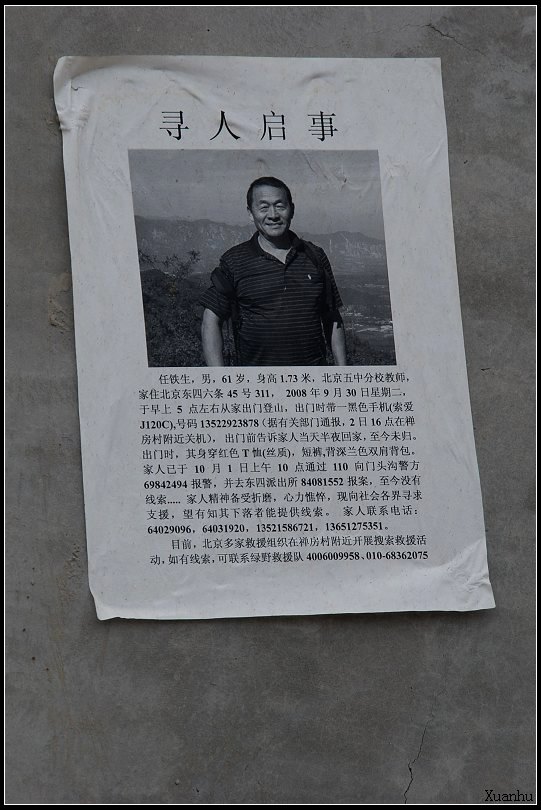 寻人启事
任铁生，男，61岁，身高1.73米，北京五中分校教师，
家住北京东四六条45号311， 2008年9月30日星期二，
于早上 5 点左右从家出门登山，出门时带一黑色手机(索爱
J120C),号码 13522923878（据有关部门通报，2日16点在禅
房村附近关机）， 出门前告诉家人当天半夜回家，至今未归。
出门时，其身穿红色T恤(丝质)，短裤,背深兰色双肩背包。
家人已于 10 月 1 日上午 10 点通过 110 向门头沟警方
69842494 报警，并去东四派出所 84081552 报案，至今没有
线索..... 家人精神备受折磨，心力憔悴，现向社会各界寻求
支援，望有知其下落者能提供线索。 家人联系电话：
64029096，64031920，13521586721，13651275351。
目前，北京多家救援组织在禅房村附近开展搜索救援活
动，如有线索，可联系绿野救援队 4006009958、010-68362075
Xuanhu